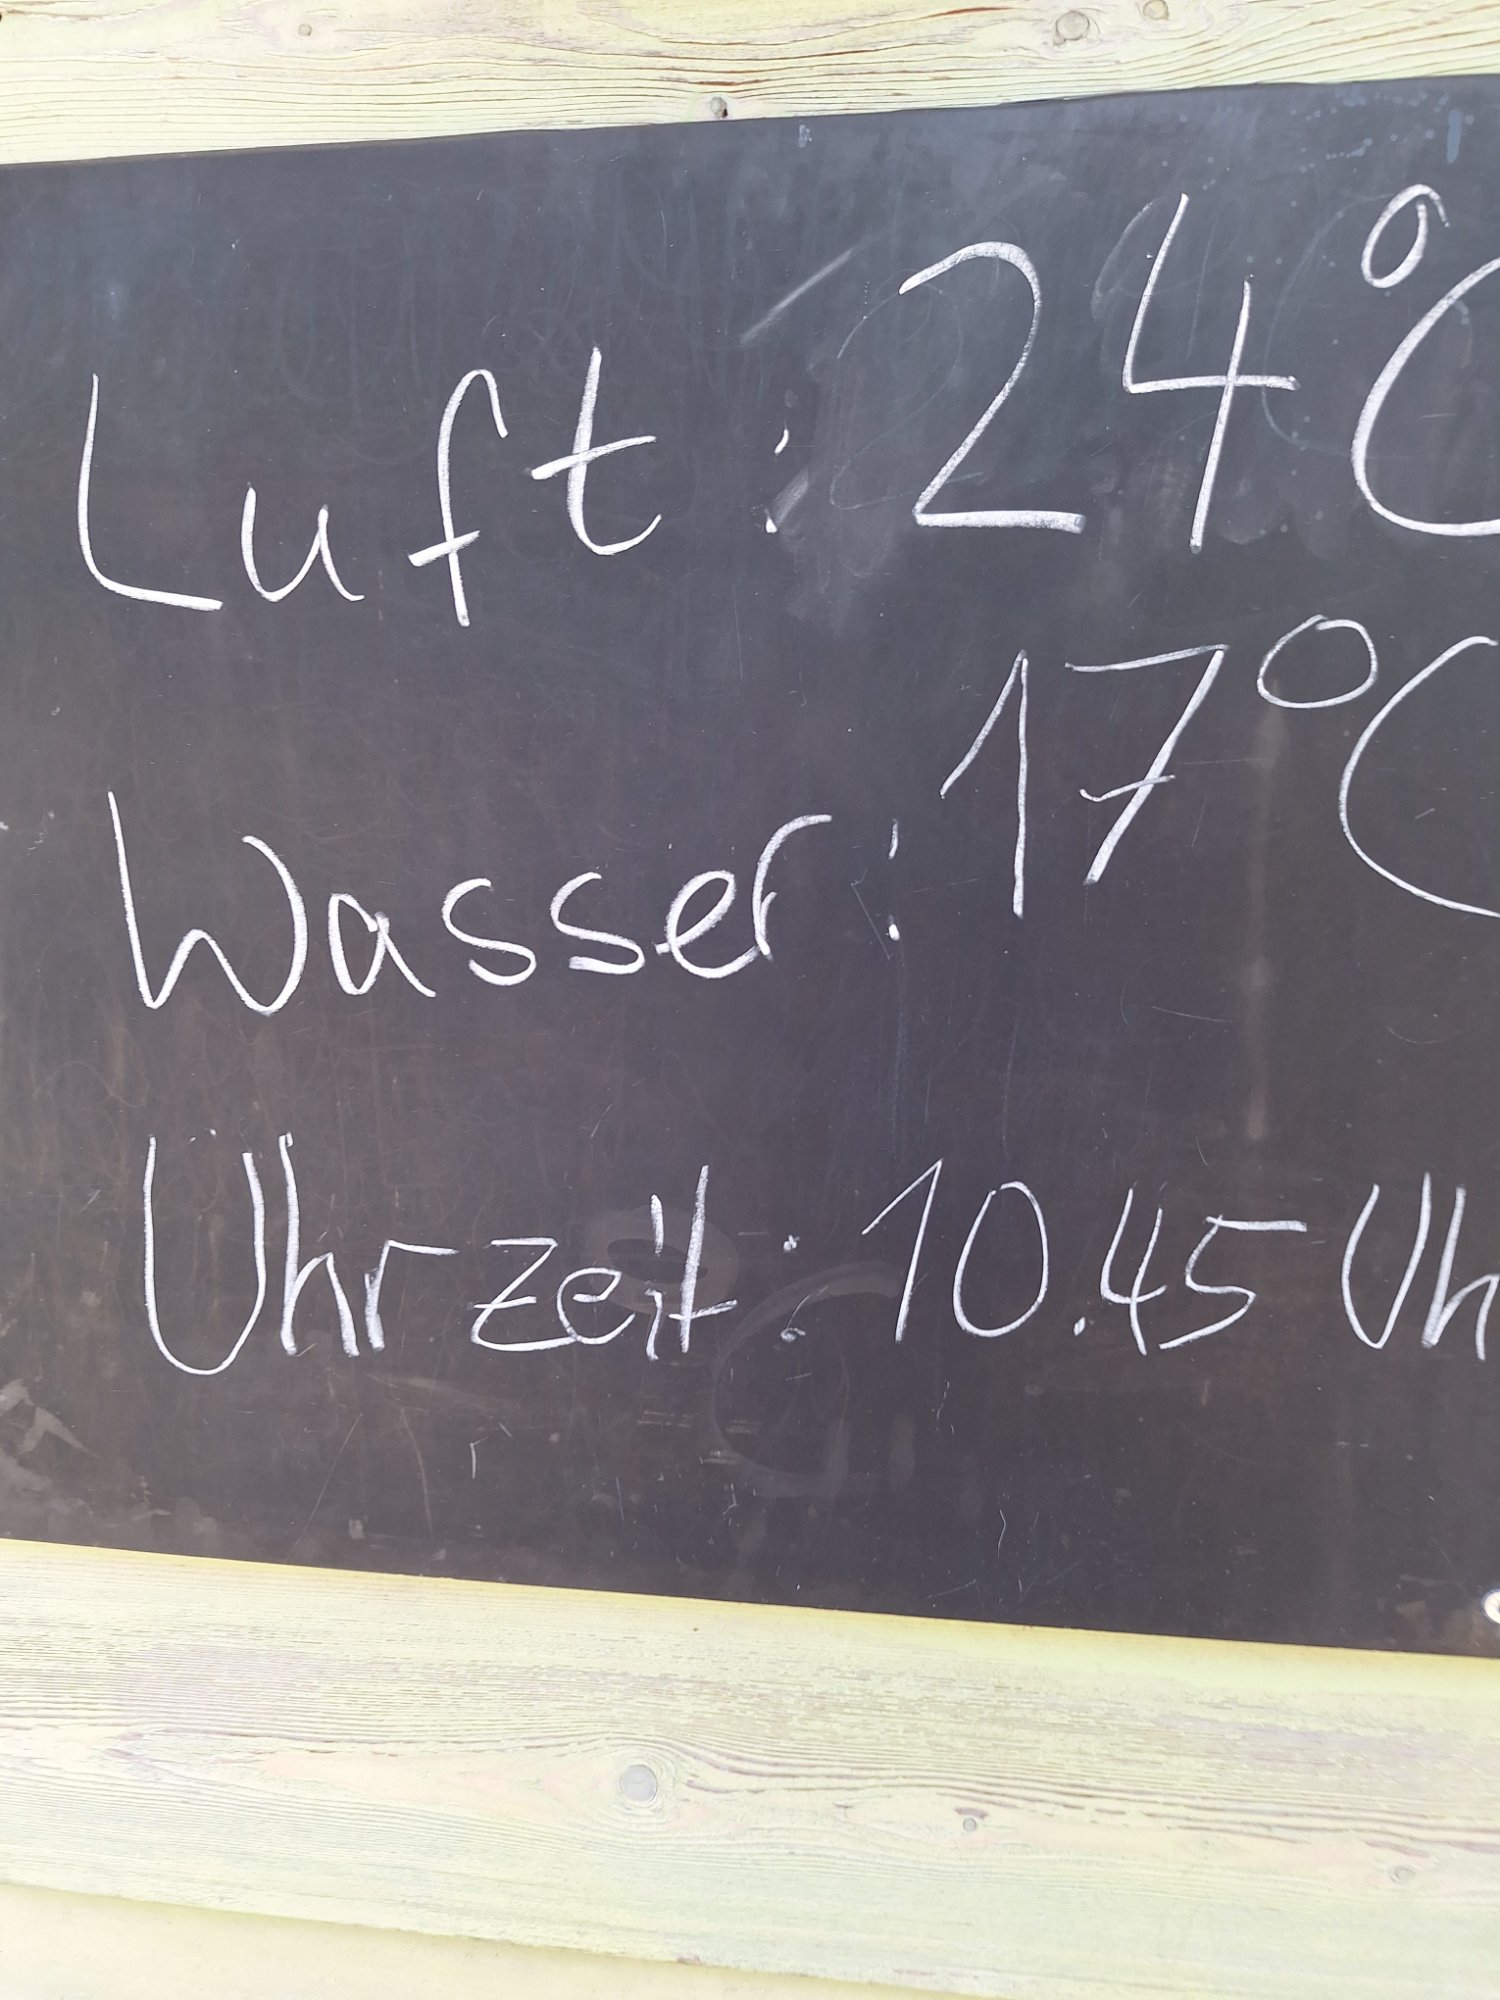 Luft : 24°C
Wasser : 17°C
Uhrzeit : 10.45 Uh